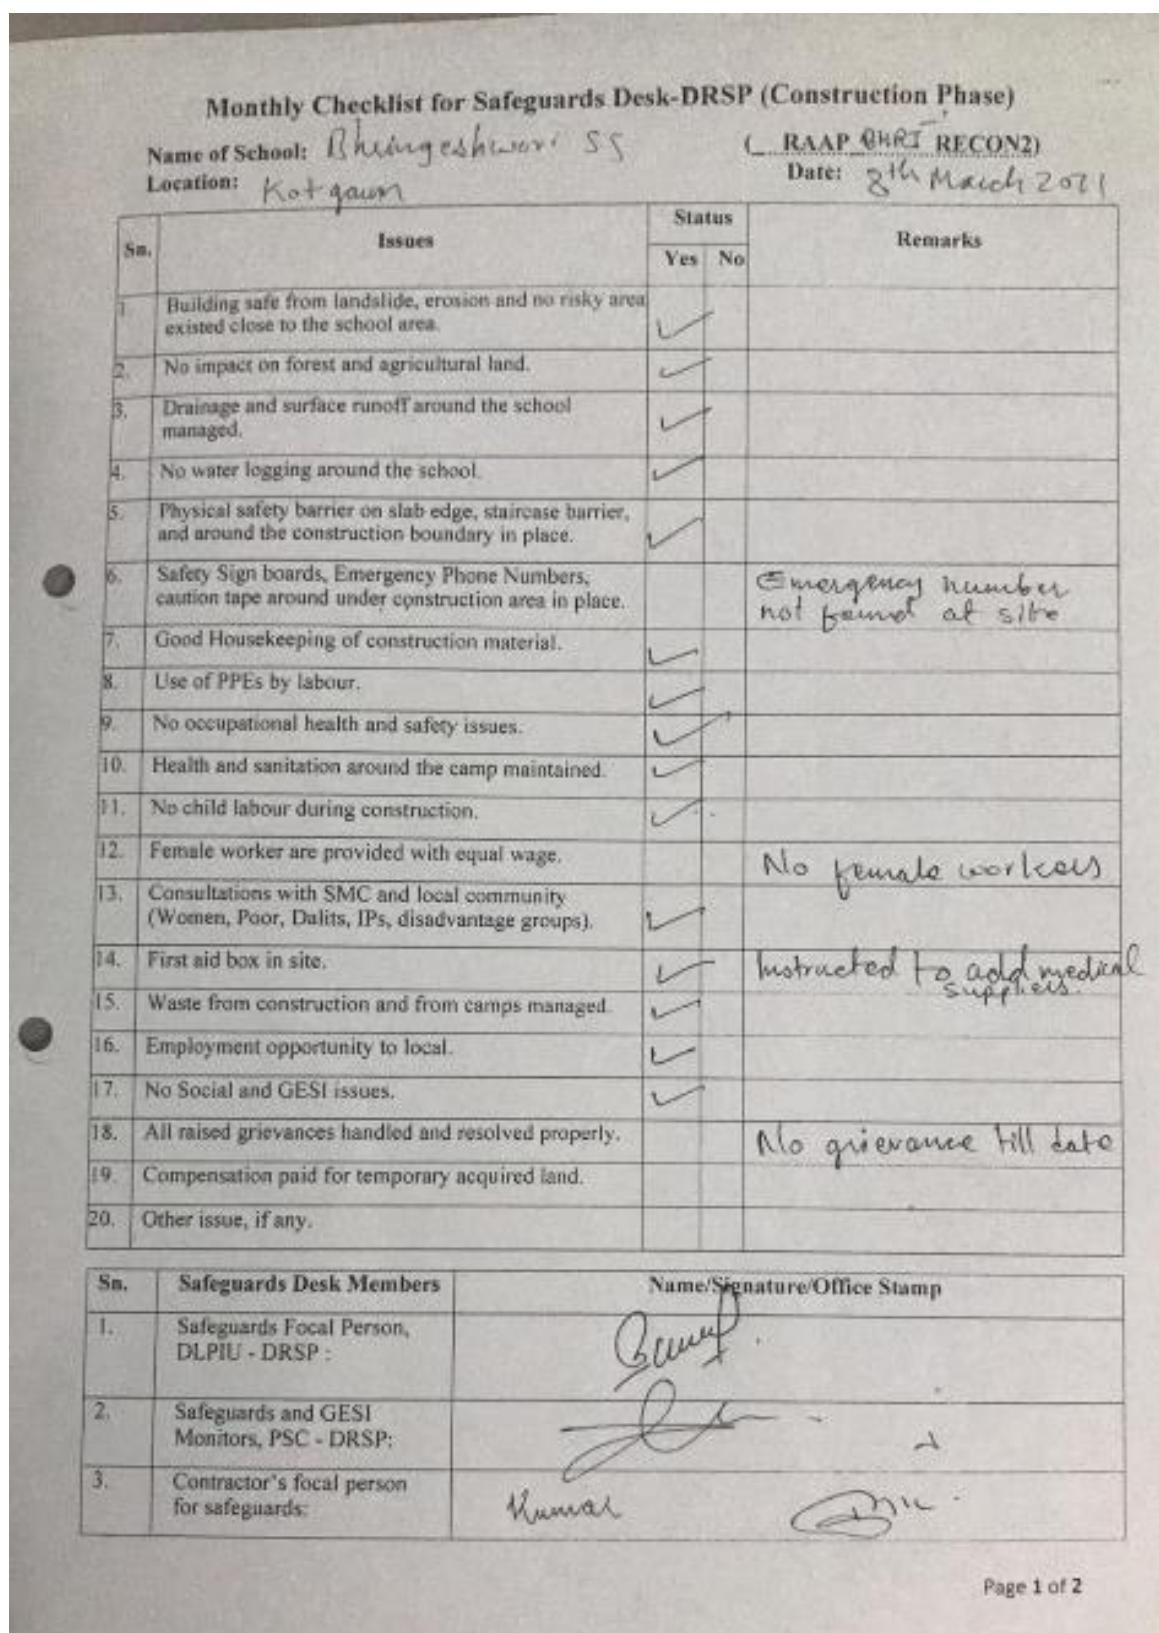 Monthly Checklist for Safeguards Desk-DRSP (Construction Phase)
Name of School: Bhringeshwori SS ( RAAP BHRI RECON2)
Location: Kotgaun Date: 8th March 2021
Sn. Issues Status Remarks
Yes No
1 Building safe from landslide, erosion and no risky area
existed close to the school area. ✓
2. No impact on forest and agricultural land. ✓
3. Drainage and surface runoff around the school
managed. ✓
4. No water logging around the school. ✓
5. Physical safety barrier on slab edge, staircase barrier,
and around the construction boundary in place. ✓
6. Safety Sign boards, Emergency Phone Numbers, Emergency number
caution tape around under construction area in place. not found at site
7. Good Housekeeping of construction material. ✓
8. Use of PPEs by labour. ✓
9. No occupational health and safety issues. ✓
10. Health and sanitation around the camp maintained. ✓
11. No child labour during construction. ✓
12. Female worker are provided with equal wage. No female workers
13. Consultations with SMC and local community
(Women, Poor, Dalits, IPs, disadvantage groups). ✓
14. First aid box in site. ✓ Instructed to add medical
suppliers.
15. Waste from construction and from camps managed. ✓
16. Employment opportunity to local. ✓
17. No Social and GESI issues. ✓
18. All raised grievances handled and resolved properly. No grievance till date
19. Compensation paid for temporary acquired land.
20. Other issue, if any.
Sn. Safeguards Desk Members Name/Signature/Office Stamp
1. Safeguards Focal Person,
DLPIU - DRSP :
2. Safeguards and GESI
Monitors, PSC - DRSP:
3. Contractor's focal person
for safeguards: Kumar
Page 1 of 2